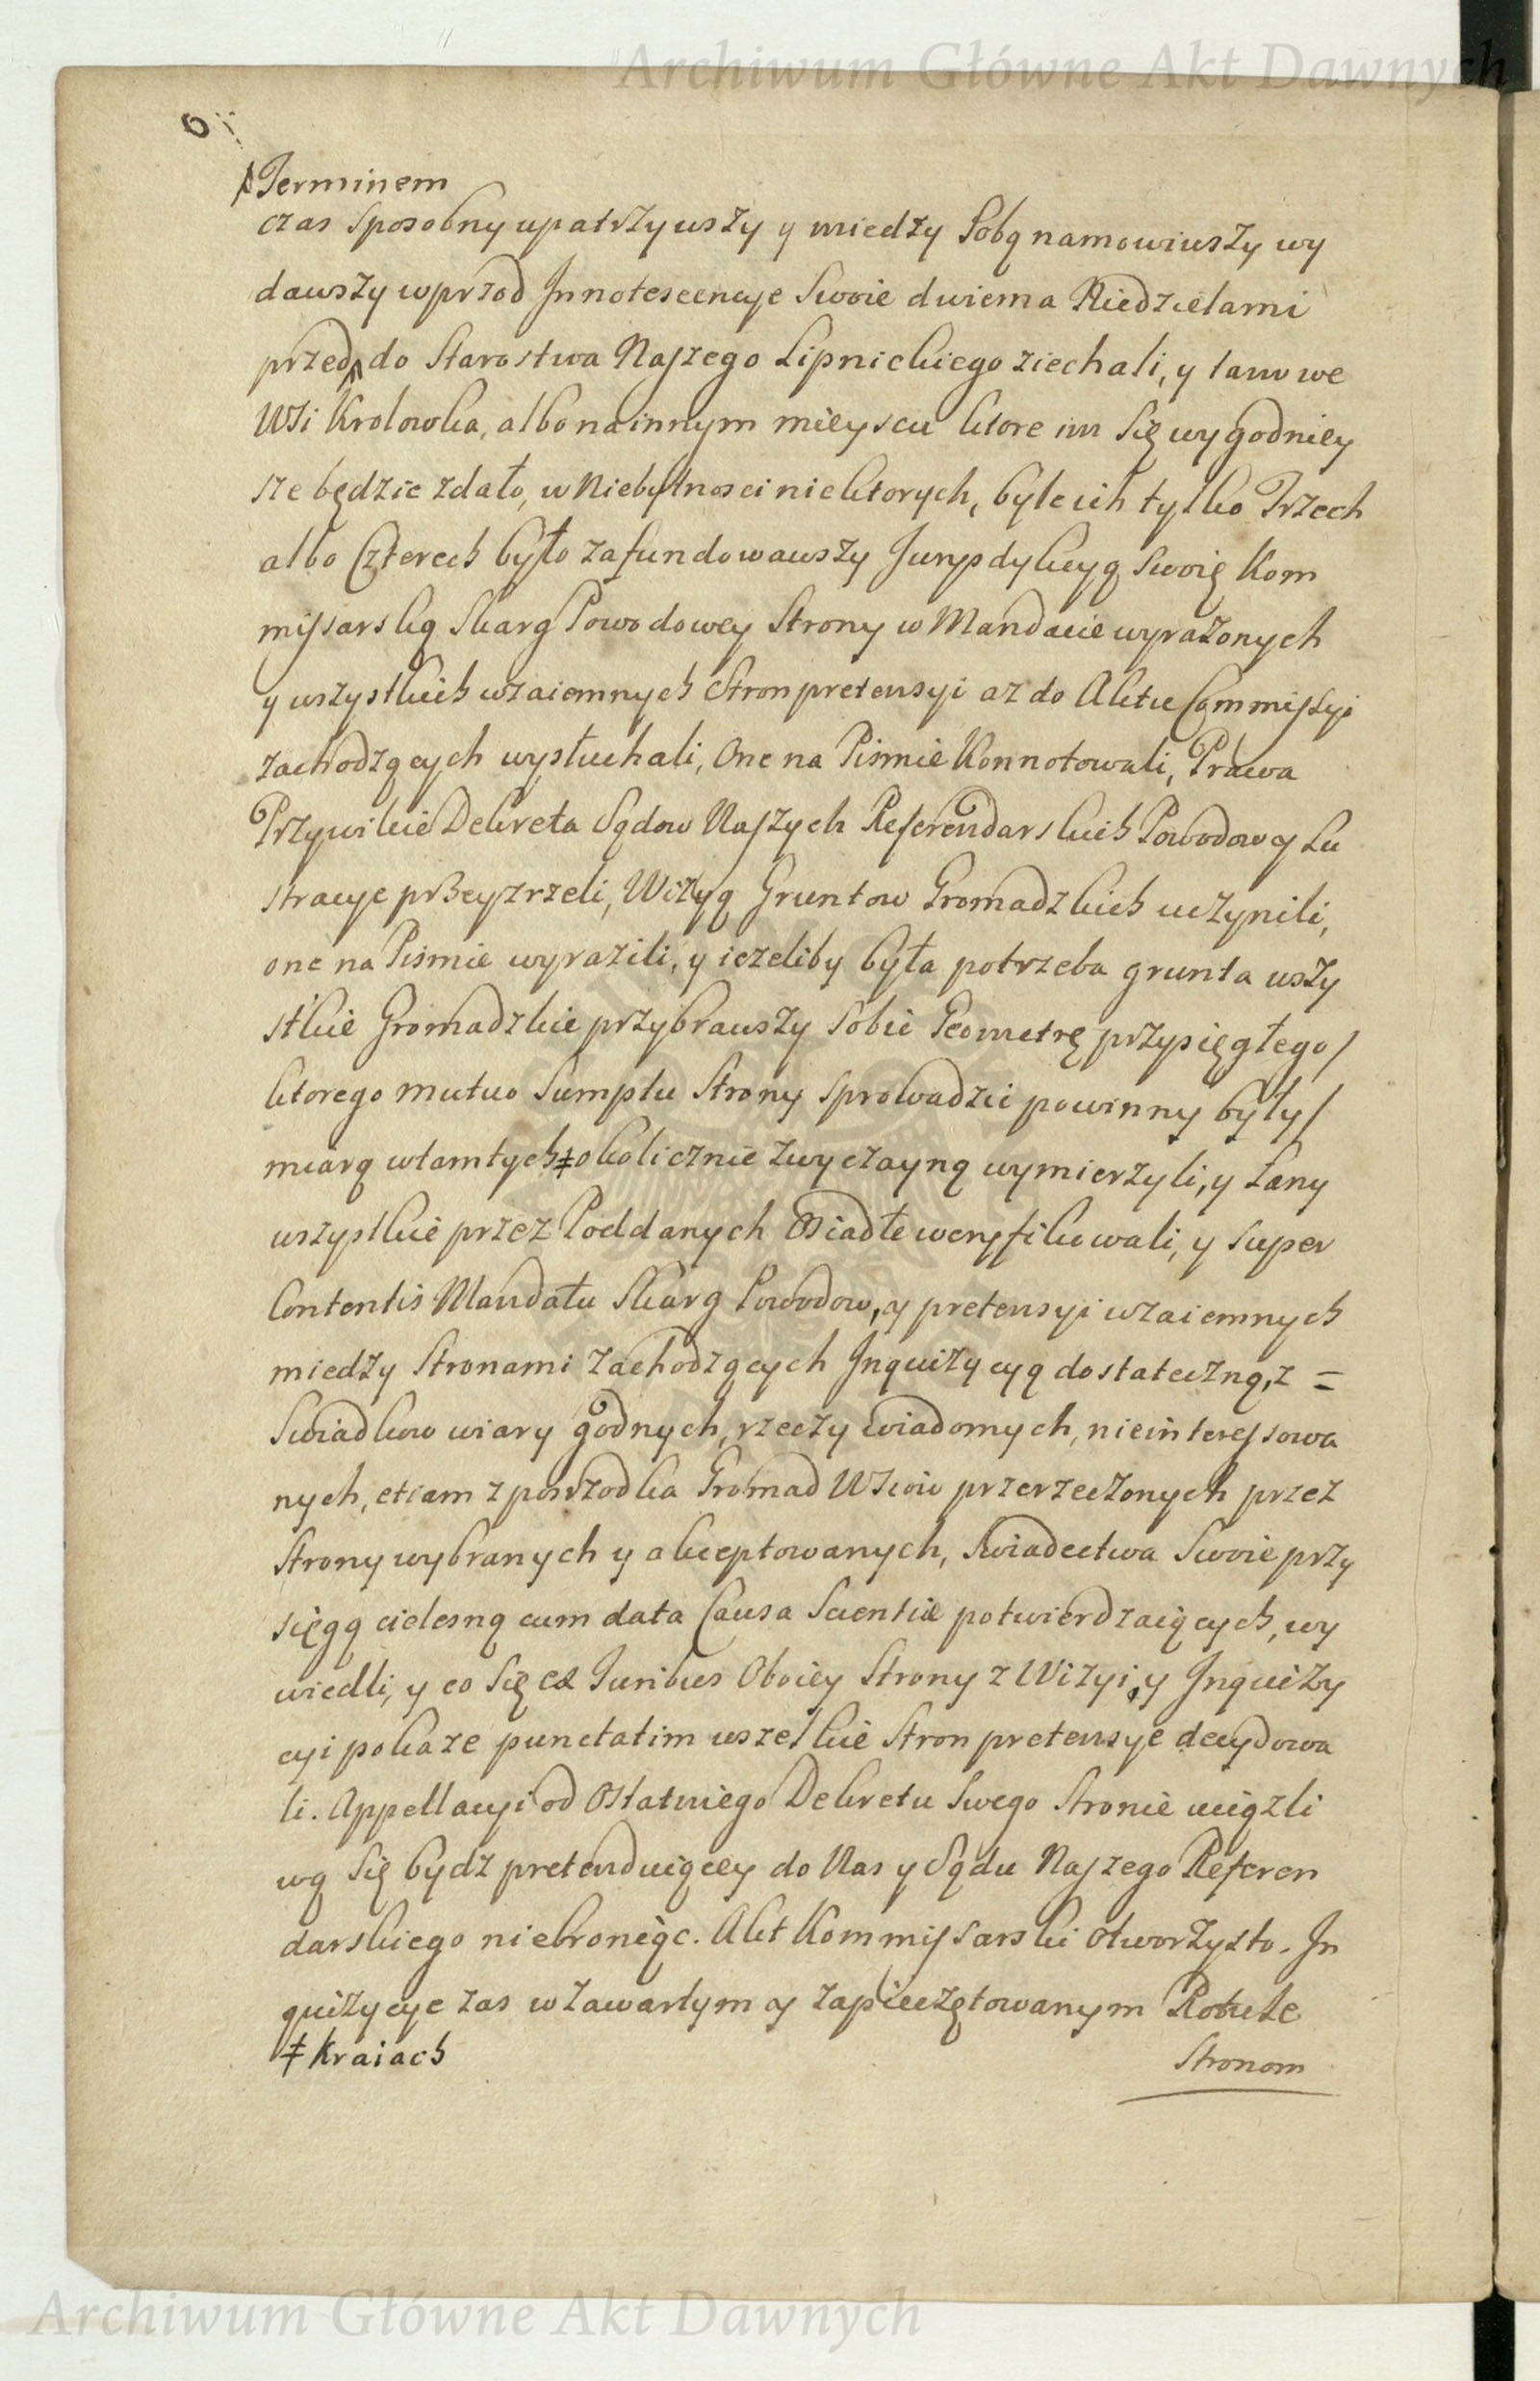 Archiwum Główne Akt Dawnych
6
Terminem
czas sposobny upatrzywszy y miedzy Sobą namowiwszy wy
dawszy wprzod Innotescencye Swoie dwiema Niedzielami
przed do Starostwa Naszego Lipnickiego ziechali, y tam we
Wsi Krolowka, albo na innym mieyscu ktore im Się wygodniey
sze będzie zdało, w Niebytnosci niektorych, byle ich tylko Trzech
albo Czterech było zafundowawszy Jurysdykcyą Swoię Kom
missarską Skarg Powodowey Strony w Mandacie wyrażonych
y wszystkich wzaiemnych Stron pretensyi az do Aktu Commissyi
zachodzących wysłuchali, One na Pismie Konnotowali, Prawa
Przywileie Dekreta Sądow Naszych Referendarskich Powodow y Lu
stracye przeyzrzeli, Wizyą Gruntow Gromadzkich uczynili,
one na Pismie wyrazili, y iezeliby była potrzeba grunta wszy
stkie Gromadzkie przybrawszy Sobie Geometrę przysięgłego /
ktorego mutuo Sumptu Strony sprowadzic powinny były /
miarą w tamtych ‡ okolicznie zwyczayną wymierzyli, y Łany
wszystkie przez Poddanych Osiadłe weryfikowali, y super
Contentis Mandatu Skarg Powodow, y pretensyi wzaiemnych
miedzy Stronami zachodzących Inquizycyą dostateczną, z =
Swiadkow wiary godnych, rzeczy wiadomych, nieinteressowa
nych, etiam z posrzodka Gromad Wsiow przerzeczonych przez
Strony wybranych y akceptowanych, Swiadectwa Swoie przy
sięgą cielesną cum data Causa Scientiæ potwierdzaiących, wy
wiedli, y co Się ex Juribus Oboiey Strony z Wizyi, y Inquizy
cyi pokaze punctatim wszelkie Stron pretensye decydowa
li. Appellacyi od Ostatniego Dekretu Swego Stronie uciązli
wą Się bydz pretenduiącey do Nas y Sądu Naszego Referen
darskiego niebroniąc. Akt Kommissarski otworzysto. In
quizycye zas w zawartym y zapieczętowanym Rotule
‡ Kraiach
Stronom
Archiwum Główne Akt Dawnych